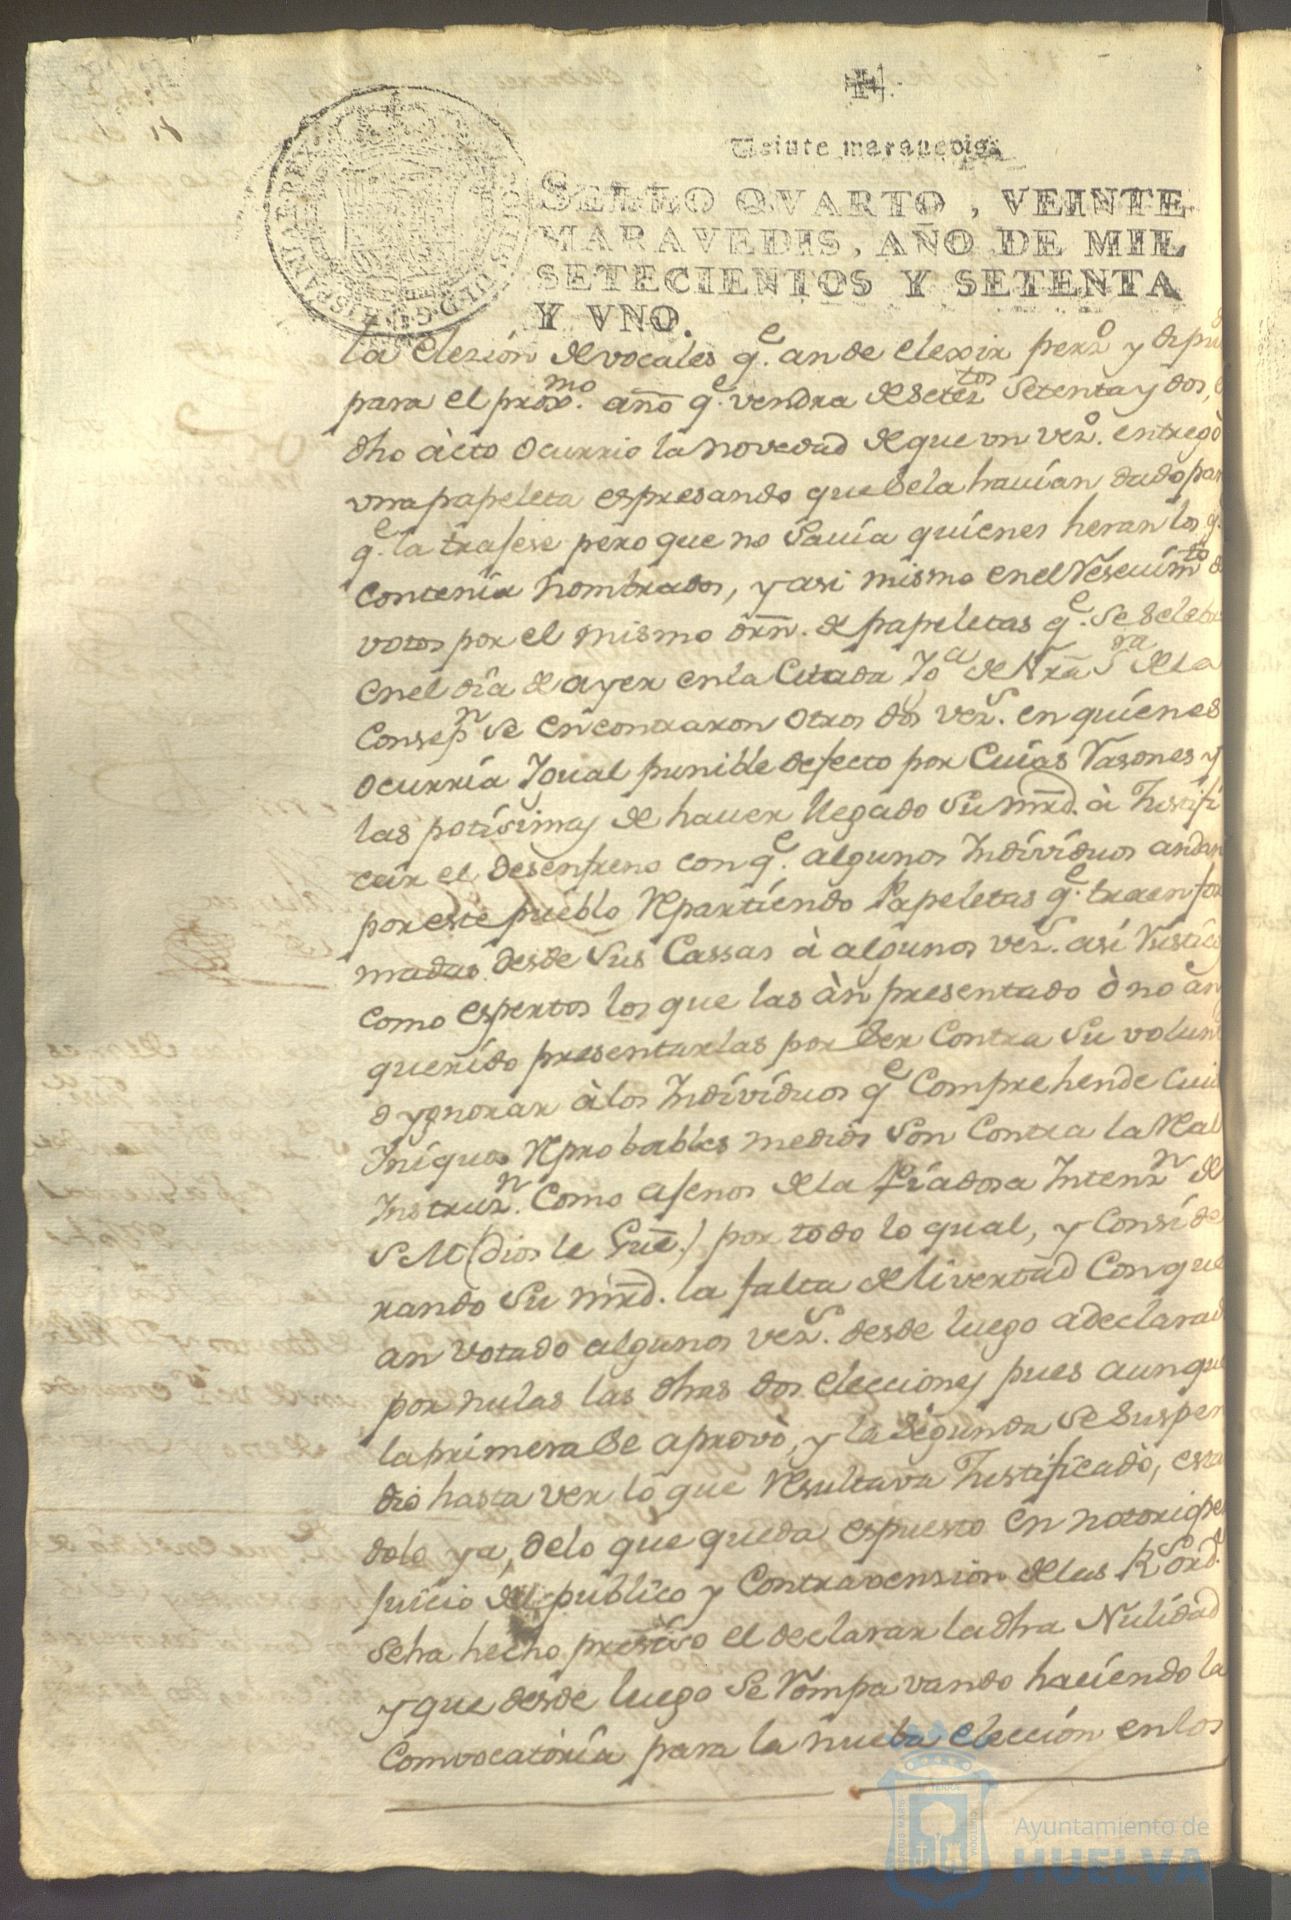 Veinte maravedis.
SELLO QVARTO, VEINTE
MARAVEDIS, AÑO DE MIL
SETECIENTOS Y SETENTA
Y VNO.
HISPANIAR. REX
D. G.
la elezión de vocales q.e an de elexir perz.o y dipu
para el prox.mo año q.e vendra de setez.tos setenta y dos,
dho àcto ocurrio la novedad de que vn vez.o entregò
vna papeleta espresando que se la havían dado par
q.e la trajese pero que no savía quíenes heran los q.
contenía nombrados, y asi mismo en el resevím.to d
votos por el mismo orn. de papeletas q.e se selebr
en el día de ayer en la citada Ygª de Nrã S.ra de la
Consepn se encontraron otros dos vez.s en quíenes
ocurría ygual punible defecto por cuías razones y
las potísimas de haver llegado su mrd. à justifi
car el desenfreno con q.e algunos índívíduos andan
por este pueblo repartíendo papeletas q.e traen for
madas desde sus cassas à algunos vez.s así rústico
como espertos los que las àn presentado ò no àn
querído presentarlas por ser contra su volun
d ygnorar à los índívíduos q.e comprehende cuio
íníquos reprobables medios son contra la Real
Instruz.n como ajenos de la píadosa intenz.n de
S M (dios le gue.) por todo lo qual, y consíde
rando su mrd. la falta de livertad con que
an votado algunos vez.s desde luego a declarad
por nulas las dhas dos elecciones pues aunque
la prímera se aprovò, y la segunda se suspen
dio hasta ver lo que resultava justificadò, esta
dolo ya, de lo que queda espuesto en notorio pe
juicio del publico y contravension de las Rs ord.s
se ha hecho presíso el declarar la dha nulídad
y que desde luego se rompa vando hacíendo la
comvocatoría para la nueba elección en los
Ayuntamiento de
HUELVA